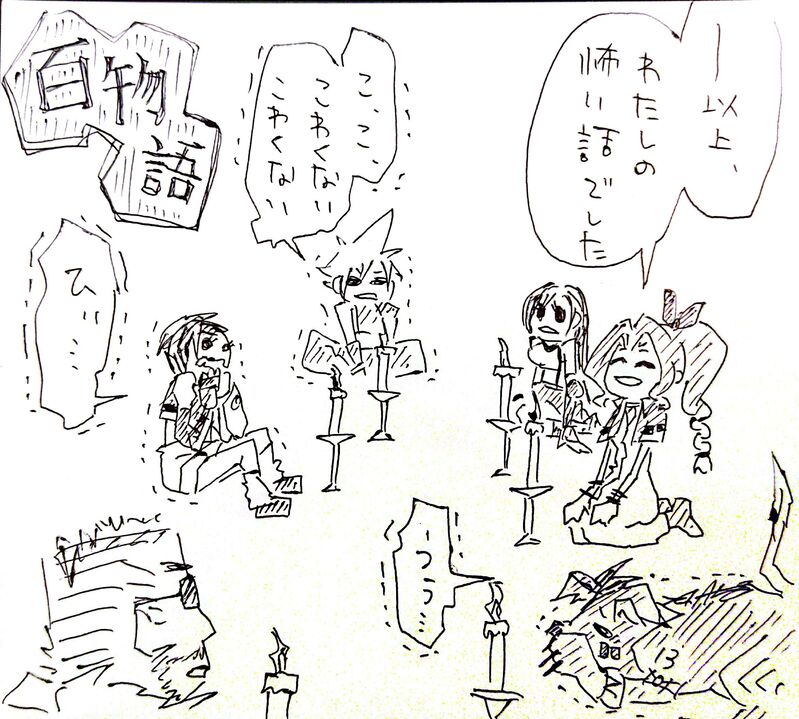 百物語
―以上、
わたしの
怖い話でした
こ、こ、
こわくない
こわくない
ひぃ…
ーつう…
13